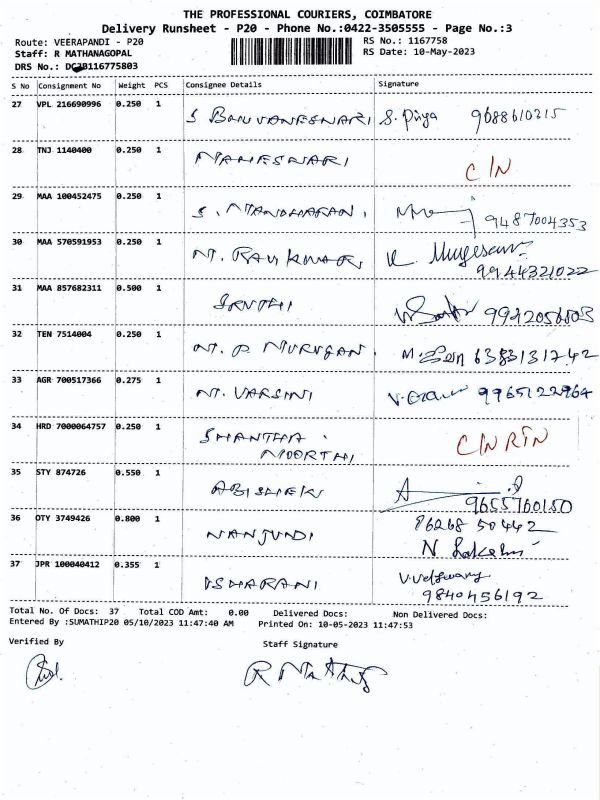 THE PROFESSIONAL COURIERS, COIMBATORE
Delivery Runsheet - P20 - Phone No.:0422-3505555 - Page No.:3
Route: VEERAPANDI - P20 RS No.: 1167758
Staff: R MATHANAGOPAL RS Date: 10-May-2023
DRS No.:
S No Consignment No Weight PCS Consignee Details Signature
27 VPL 216690996 0.250 1 S. Priya 9688610215
28 TNJ 1140400 0.250 1 MAHESWARI C/N
29 MAA 100452475 0.250 1 9487004353
30 MAA 570591953 0.250 1 K. Murugesan
9944321022
31 MAA 857682311 0.500 1 SRUTHI
32 TEN 7514004 0.250 1 MT. P. MURUGAN. 6383131742
33 AGR 700517366 0.275 1 MT. VARSINI 9965122964
34 HRD 7000064757 0.250 1 SHANTHA C/N RTN
MOORTHI
35 STY 874726 0.550 1 ABISHEK
9655760150
36 OTY 3749426 0.800 1 NANJUNDI 86268 50442
37 JPR 100040412 0.355 1 ISHARANI
9840456192
Total No. Of Docs: 37 Total COD Amt: 0.00 Delivered Docs: Non Delivered Docs:
Entered By :SUMATHIP20 05/10/2023 11:47:40 AM Printed On: 10-05-2023 11:47:53
Verified By Staff Signature